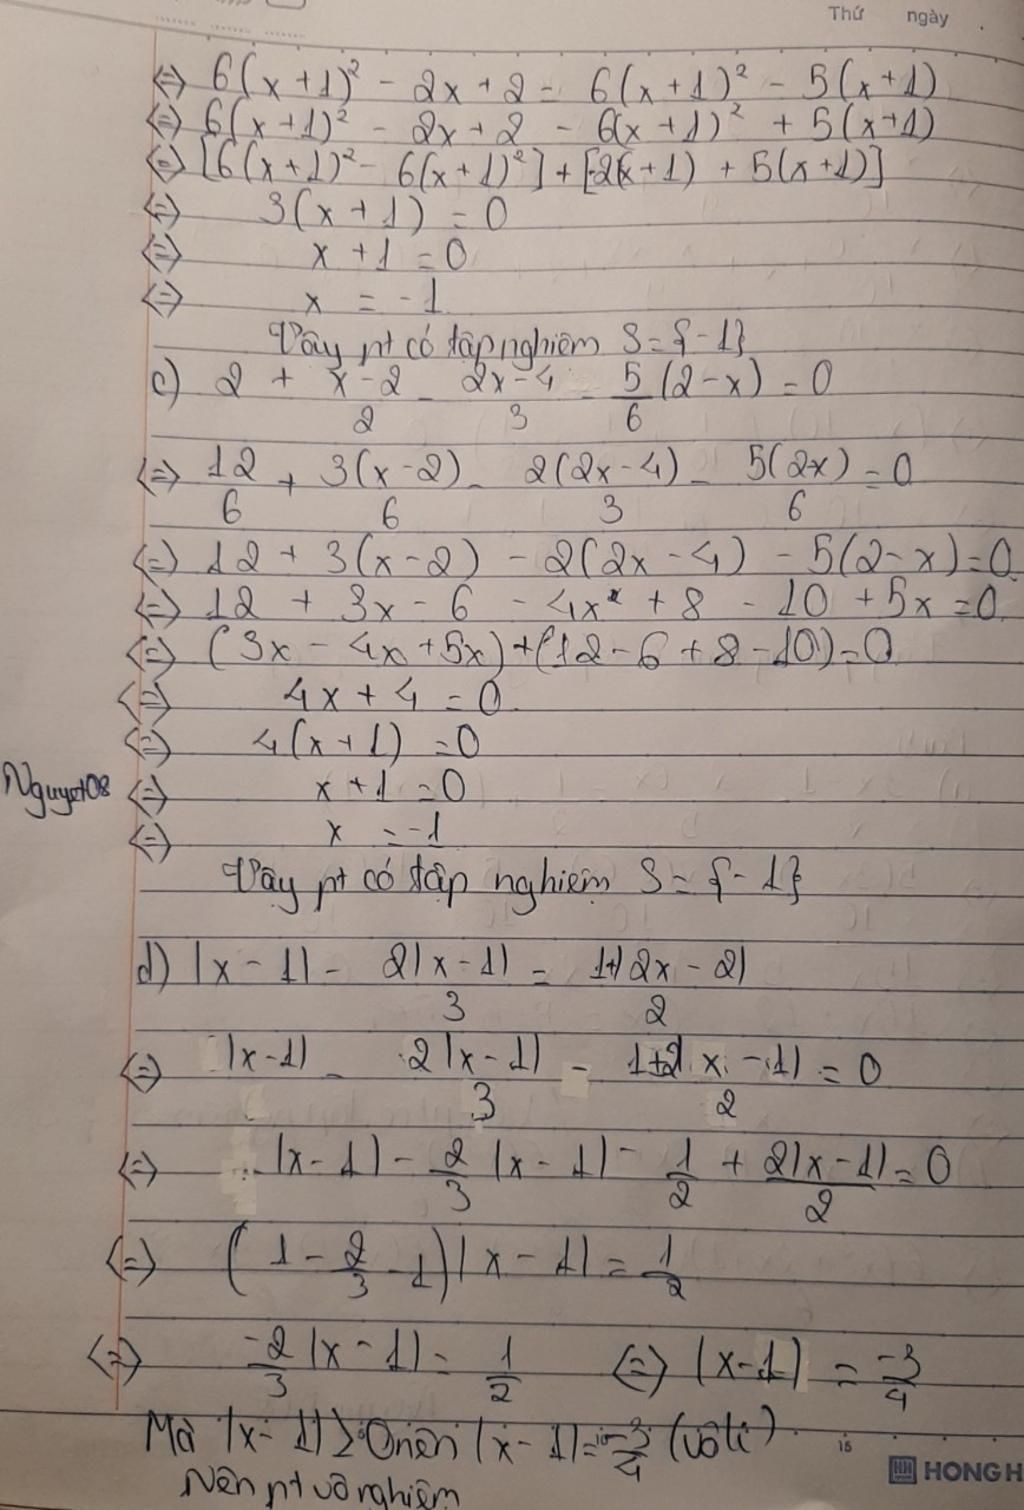 Thứ ngày
<=> 6(x+1)² - 2x + 2 = 6(x+1)² - 5(x+1)
<=> 6(x+1)² - 2x + 2 - 6(x+1)² + 5(x+1)
<=> [6(x+1)² - 6(x+1)²] + [-2(x+1) + 5(x+1)]
<=> 3(x+1) = 0
<=> x + 1 = 0
<=> x = -1
Vậy pt có tập nghiệm S = {-1}
c) 2 + (x-2)/2 - (2x-4)/3 - 5/6 (2-x) = 0
<=> 12/6 + 3(x-2)/6 - 2(2x-4)/3 - 5(2x)/6 = 0
<=> 12 + 3(x-2) - 2(2x-4) - 5(2-x) = 0
<=> 12 + 3x - 6 - 4x + 8 - 10 + 5x = 0
<=> (3x - 4x + 5x) + (12 - 6 + 8 - 10) = 0
<=> 4x + 4 = 0
<=> 4(x+1) = 0
Nguyet08 <=> x + 1 = 0
<=> x = -1
Vậy pt có tập nghiệm S = {-1}
d) |x-1| - 2|x-1|/3 = 1+|2x-2|/2
<=> |x-1| - 2|x-1|/3 - 1+2|x-1|/2 = 0
<=> |x-1| - 2/3 |x-1| - 1/2 + 2|x-1|/2 = 0
<=> (1 - 2/3 - 1)|x-1| = 1/2
<=> -2/3 |x-1| = 1/2 <=> |x-1| = -3/4
Mà |x-1| ≥ 0 nên |x-1| = -3/4 (vô lí)
Nên pt vô nghiệm
15
HH HONG H